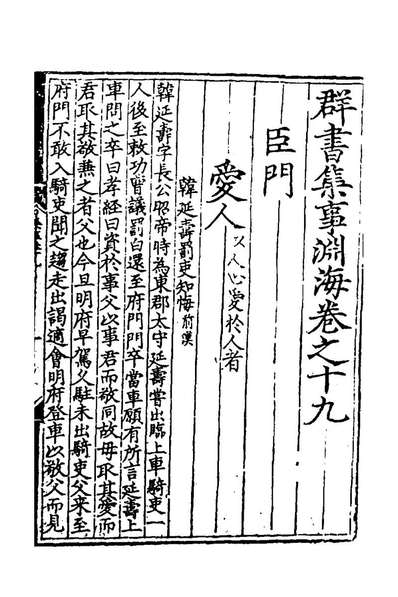 群書集事淵海卷之十九
臣門
愛人 以人心愛於人者
韓延壽罰吏知悔 前漢
韓延壽字長公昭帝時為東郡太守延壽嘗出臨上車騎吏一
人後至敕功曹議罰白還至府門門卒當車願有所言延壽上
車問之卒曰孝經曰資於事父以事君而敬同故母取其愛而
君取其敬兼之者父也今旦明府早駕久駐未出騎吏父來至
府門不敢入騎吏聞之趨走出謁適會明府登車以敬父而見